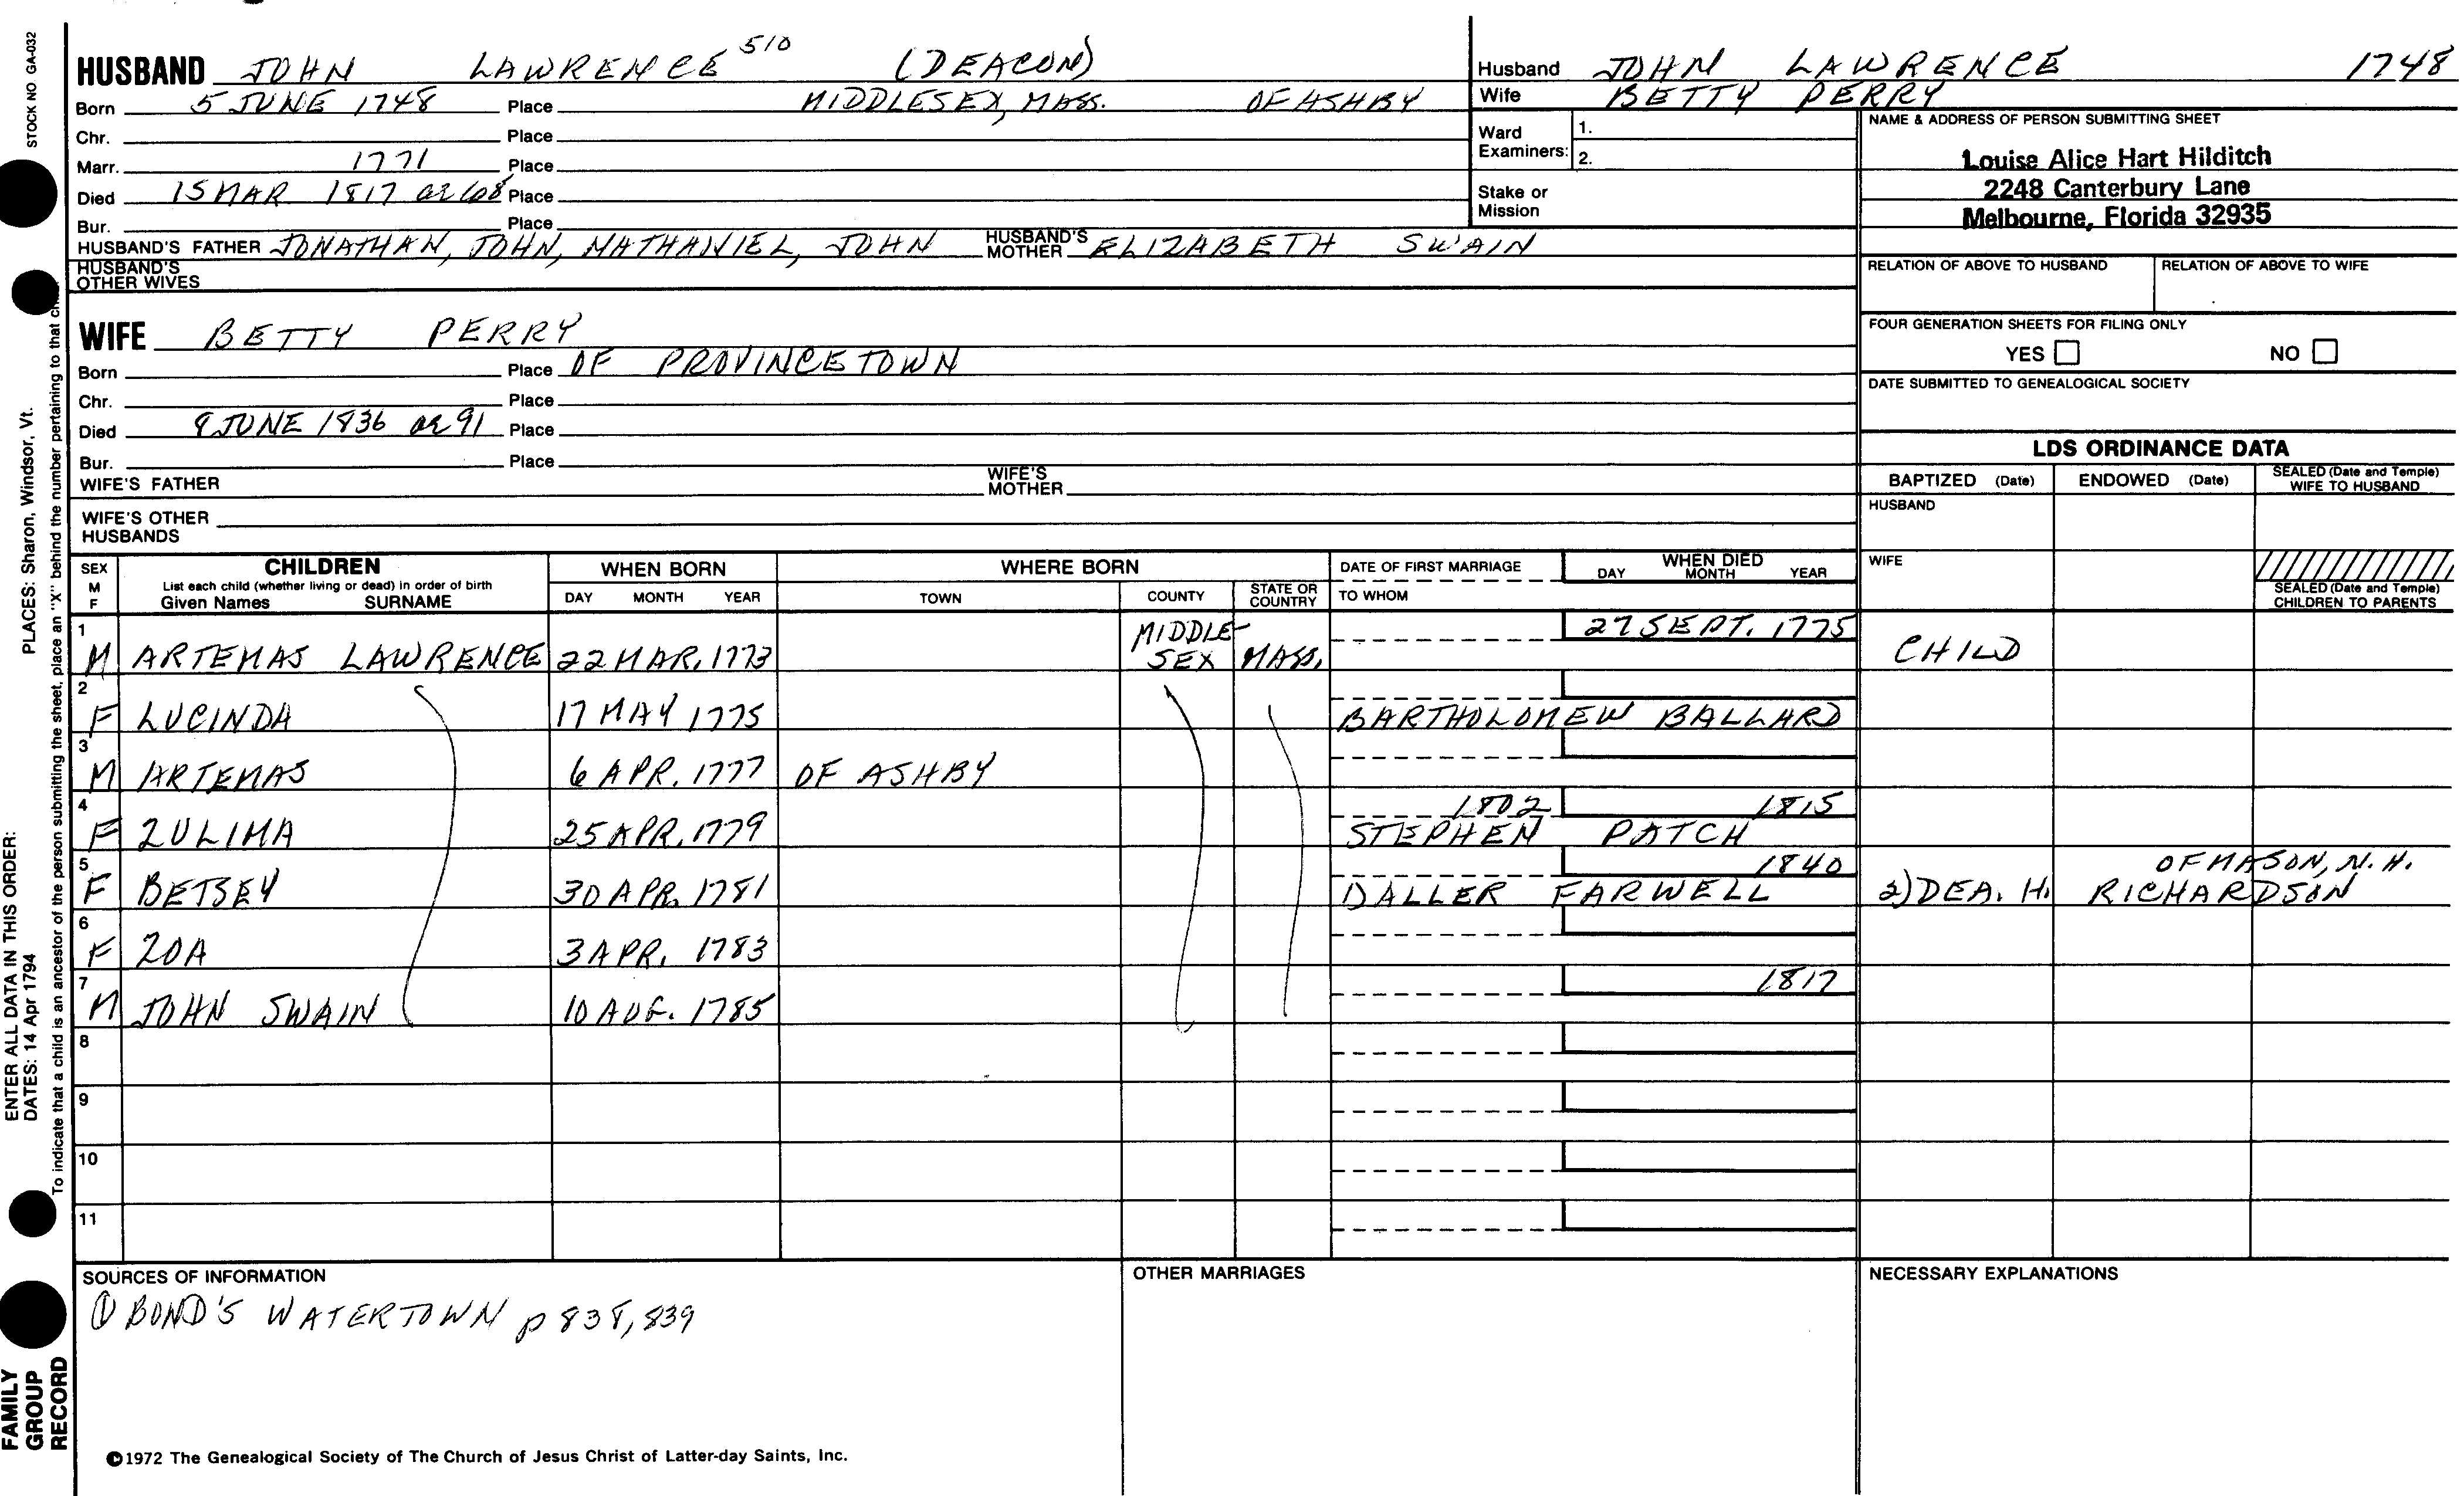 STOCK NO GA-032
PLACES: Sharon, Windsor, Vt.
ENTER ALL DATA IN THIS ORDER:
DATES: 14 Apr 1794
To indicate that a child is an ancestor of the person submitting the sheet, place an "X" behind the number pertaining to that
FAMILY GROUP RECORD
HUSBAND JOHN LAWRENCE 510 (DEACON)
Born 5 JUNE 1748 Place MIDDLESEX, MASS. OF ASHBY
Chr. Place
Marr. 1771 Place
Died 15 MAR 1817 Place
Bur. Place
HUSBAND'S FATHER JONATHAN, JOHN, NATHANIEL, JOHN HUSBAND'S MOTHER ELIZABETH SWAIN
HUSBAND'S OTHER WIVES
Husband JOHN LAWRENCE 1748
Wife BETTY PERRY
Ward Examiners: 1.
2.
Stake or Mission
NAME & ADDRESS OF PERSON SUBMITTING SHEET
Louise Alice Hart Hilditch
2248 Canterbury Lane
Melbourne, Florida 32935
RELATION OF ABOVE TO HUSBAND RELATION OF ABOVE TO WIFE
FOUR GENERATION SHEETS FOR FILING ONLY
YES NO
DATE SUBMITTED TO GENEALOGICAL SOCIETY
WIFE BETTY PERRY
Born Place OF PROVINCETOWN
Chr. Place
Died 9 JUNE 1836 Æ 91 Place
Bur. Place
WIFE'S FATHER WIFE'S MOTHER
WIFE'S OTHER HUSBANDS
LDS ORDINANCE DATA
BAPTIZED (Date) ENDOWED (Date) SEALED (Date and Temple) WIFE TO HUSBAND
HUSBAND
WIFE
SEALED (Date and Temple) CHILDREN TO PARENTS
SEX M F CHILDREN WHEN BORN WHERE BORN DATE OF FIRST MARRIAGE WHEN DIED
List each child (whether living or dead) in order of birth
Given Names SURNAME DAY MONTH YEAR TOWN COUNTY STATE OR COUNTRY TO WHOM DAY MONTH YEAR
1 M ARTEMAS LAWRENCE 22 MAR, 1773 MIDDLE-SEX MASS. 27 SEPT. 1775 CHILD
2 F LUCINDA 17 MAY 1775 BARTHOLOMEW BALLARD
3 M ARTEMAS 6 APR. 1777 OF ASHBY
4 F ZULIMA 25 APR. 1779 1802 1815
STEPHEN PATCH
5 F BETSEY 30 APR. 1781 1840 OF MASON, N.H.
DALLER FARWELL 2) DEA. H. RICHARDSON
6 F ZOA 3 APR. 1783
7 M JOHN SWAIN 10 AUG. 1785 1817
8
9
10
11
SOURCES OF INFORMATION OTHER MARRIAGES NECESSARY EXPLANATIONS
① BOND'S WATERTOWN p 838, 839
©1972 The Genealogical Society of The Church of Jesus Christ of Latter-day Saints, Inc.